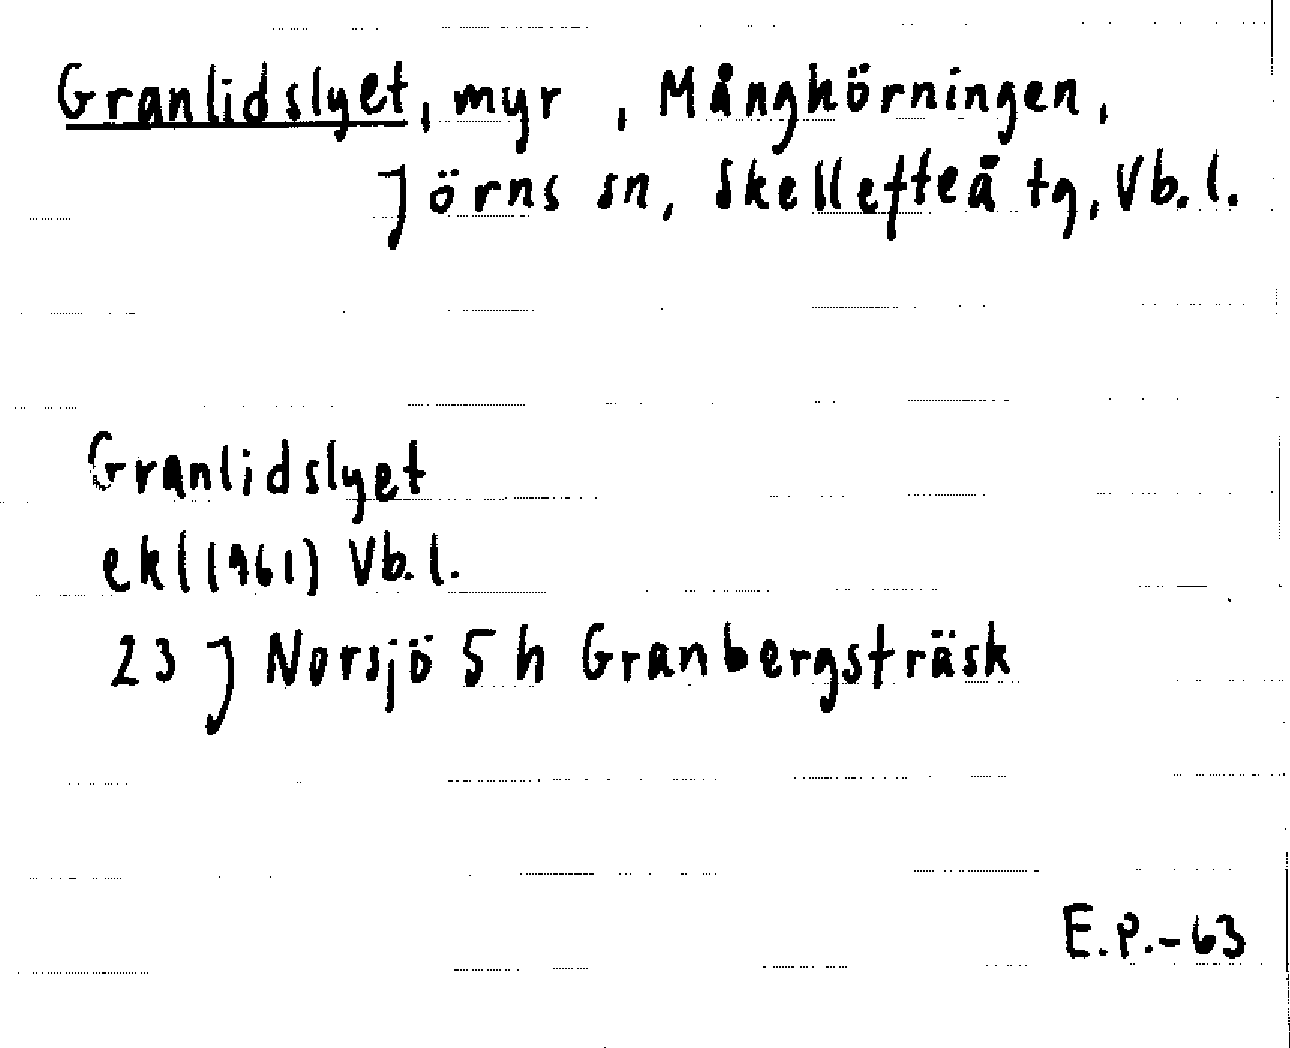 Granlidslyet, myr , Månghörningen,
Jörns sn, Skellefteå tg, Vb.l.
Granlidslyet
ekl (1961) Vb.l.
23 J Norsjö 5 h Granbergsträsk
E.P.-63